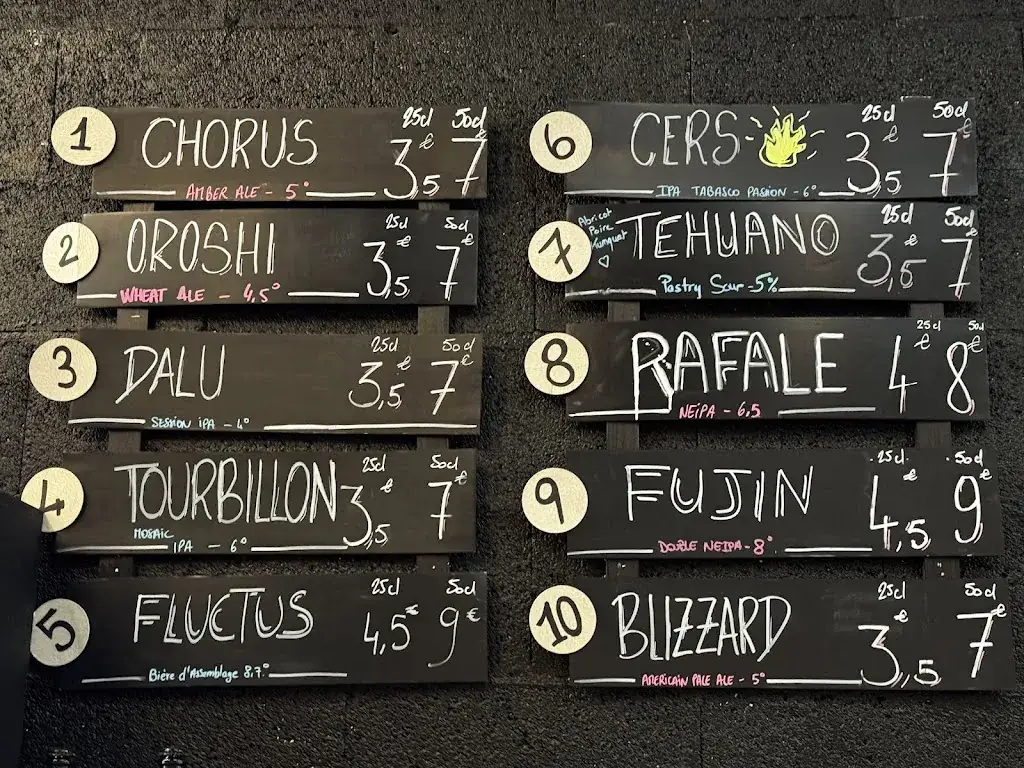 1 CHORUS 25cl 50cl
3,5€ 7€
AMBER ALE - 5°
2 OROSHI 25cl 50cl
3,5€ 7€
WHEAT ALE - 4,5°
3 DALU 25cl 50cl
3,5€ 7€
SESSION IPA - 4°
4 TOURBILLON 25cl 50cl
3,5€ 7€
MOSAIC
IPA - 6°
5 FLUCTUS 25cl 50cl
4,5€ 9€
Bière d'Assemblage 8,7°
6 CERS 25cl 50cl
3,5€ 7€
IPA TABASCO PASSION - 6°
Abricot
Poire
Kumquat
7 TEHUANO 25cl 50cl
3,5€ 7€
Pastry Sour - 5%
8 RAFALE 25cl 50cl
4€ 8€
NEIPA - 6,5
9 FUJIN 25cl 50cl
4,5€ 9€
DOUBLE NEIPA - 8°
10 BLIZZARD 25cl 50cl
3,5€ 7€
AMERICAIN PALE ALE - 5°